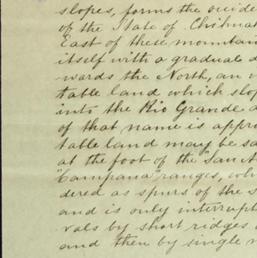 slopes, forms the
of the State of
East of these mountain
itself with a gradual d
wards the North, an
table land which slop
into the Rio Grande
of that name is appro
table land may be sa
at the foot of the "San
"Campana" ranges, wh
dered as spurs of the S
and is only interrupt
vals by short ridges
and then by single